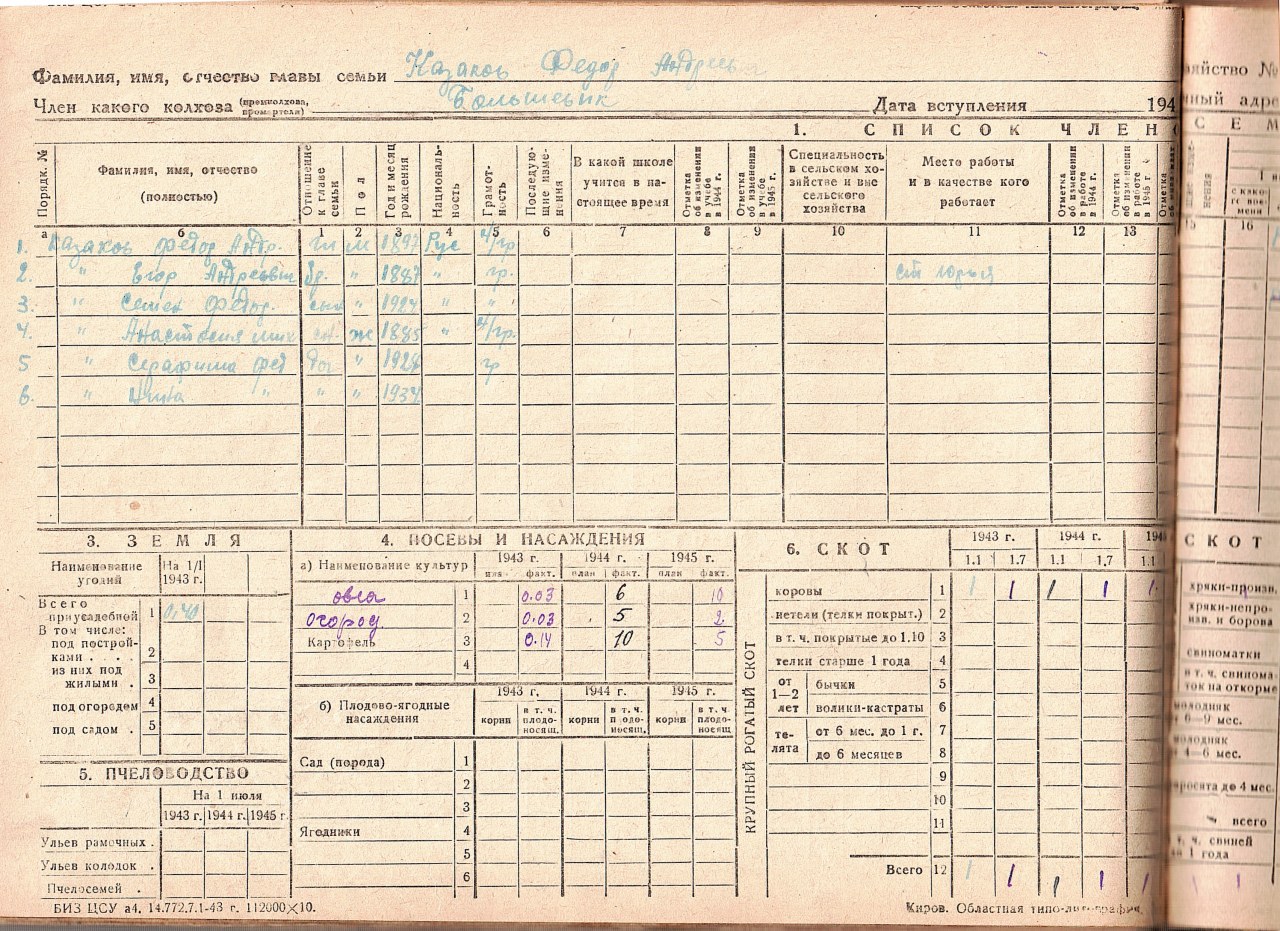 Фамилия, имя, отчество главы семьи Казаков Федор Андреевич
Член какого колхоза (промколхоза, промартели) Большевик Дата вступления 194
1. СПИСОК ЧЛЕНО
Порядк. №
Фамилия, имя, отчество (полностью)
Отношение к главе семьи
Пол
Год и месяц рождения
Националь-ность
Грамот-ность
Последую-щие изме-нения
В какой школе учится в на-стоящее время
Отметка об изменении в учебе в 1944 г.
Отметка об изменении в учебе в 1945 г.
Специальность в сельском хо-зяйстве и вне сельского хозяйства
Место работы и в качестве кого работает
Отметка об изменении в работе в 1944 г.
Отметка об изменении в работе в 1945 г.
Отметка
а б 1 2 3 4 5 6 7 8 9 10 11 12 13 15 16
1. Казаков Федор Андр. гл м 1897 Рус н/гр.
2. " Егор Андреевич бр. " 1887 " гр.
3. " Семен Федор. сын " 1924 " "
4. " Анастасия мих ж 1885 " н/гр.
5 " Серафима фед доч " 1928 гр
6. " Нина " " " 1934
3. ЗЕМЛЯ
Наименование угодий
На 1/I 1943 г.
Всего приусадебной 1 0,40
В том числе:
под построй-ками . . . . 2
из них под жилыми . 3
под огородом 4
под садом . 5
5. ПЧЕЛОВОДСТВО
На 1 июля
1943 г. 1944 г. 1945 г.
Ульев рамочных .
Ульев колодок .
Пчелосемей .
4. ПОСЕВЫ И НАСАЖДЕНИЯ
а) Наименование культур
1943 г. 1944 г. 1945 г.
план факт. план факт. план факт.
овса 1 0.03 6 10
огород 2 0.03 5 2
Картофель 3 0.14 10 5
4
б) Плодово-ягодные насаждения
1943 г. 1944 г. 1945 г.
корни в т. ч. плодо-носящ. корни в т. ч. плодо-носящ. корни в т. ч. плодо-носящ
Сад (порода) 1
2
3
Ягодники 4
5
6
6. СКОТ
1943 г. 1944 г. 194
1.1 1.7 1.1 1.7 1.1
КРУПНЫЙ РОГАТЫЙ СКОТ
коровы 1 1 1 1 1 1
нетели (телки покрыт.) 2
в т. ч. покрытые до 1.10 3
телки старше 1 года 4
от 1—2 лет бычки 5
волики-кастраты 6
те-лята от 6 мес. до 1 г. 7
до 6 месяцев 8
9
10
11
Всего 12 1 1 1 1 1
БИЗ ЦСУ а4. 14.772.7.1-43 г. 112000×10.
Киров. Областная типо-литография.
яйство №
ный адре
СЕМ
СКОТ
хряки-произв.
хряки-непро-изв. и борова
свиноматки
в т. ч. свинома-ток на откорме
молодняк 6—9 мес.
молодняк 4—6 мес.
поросята до 4 мес.
всего
т. ч. свиней до 1 года